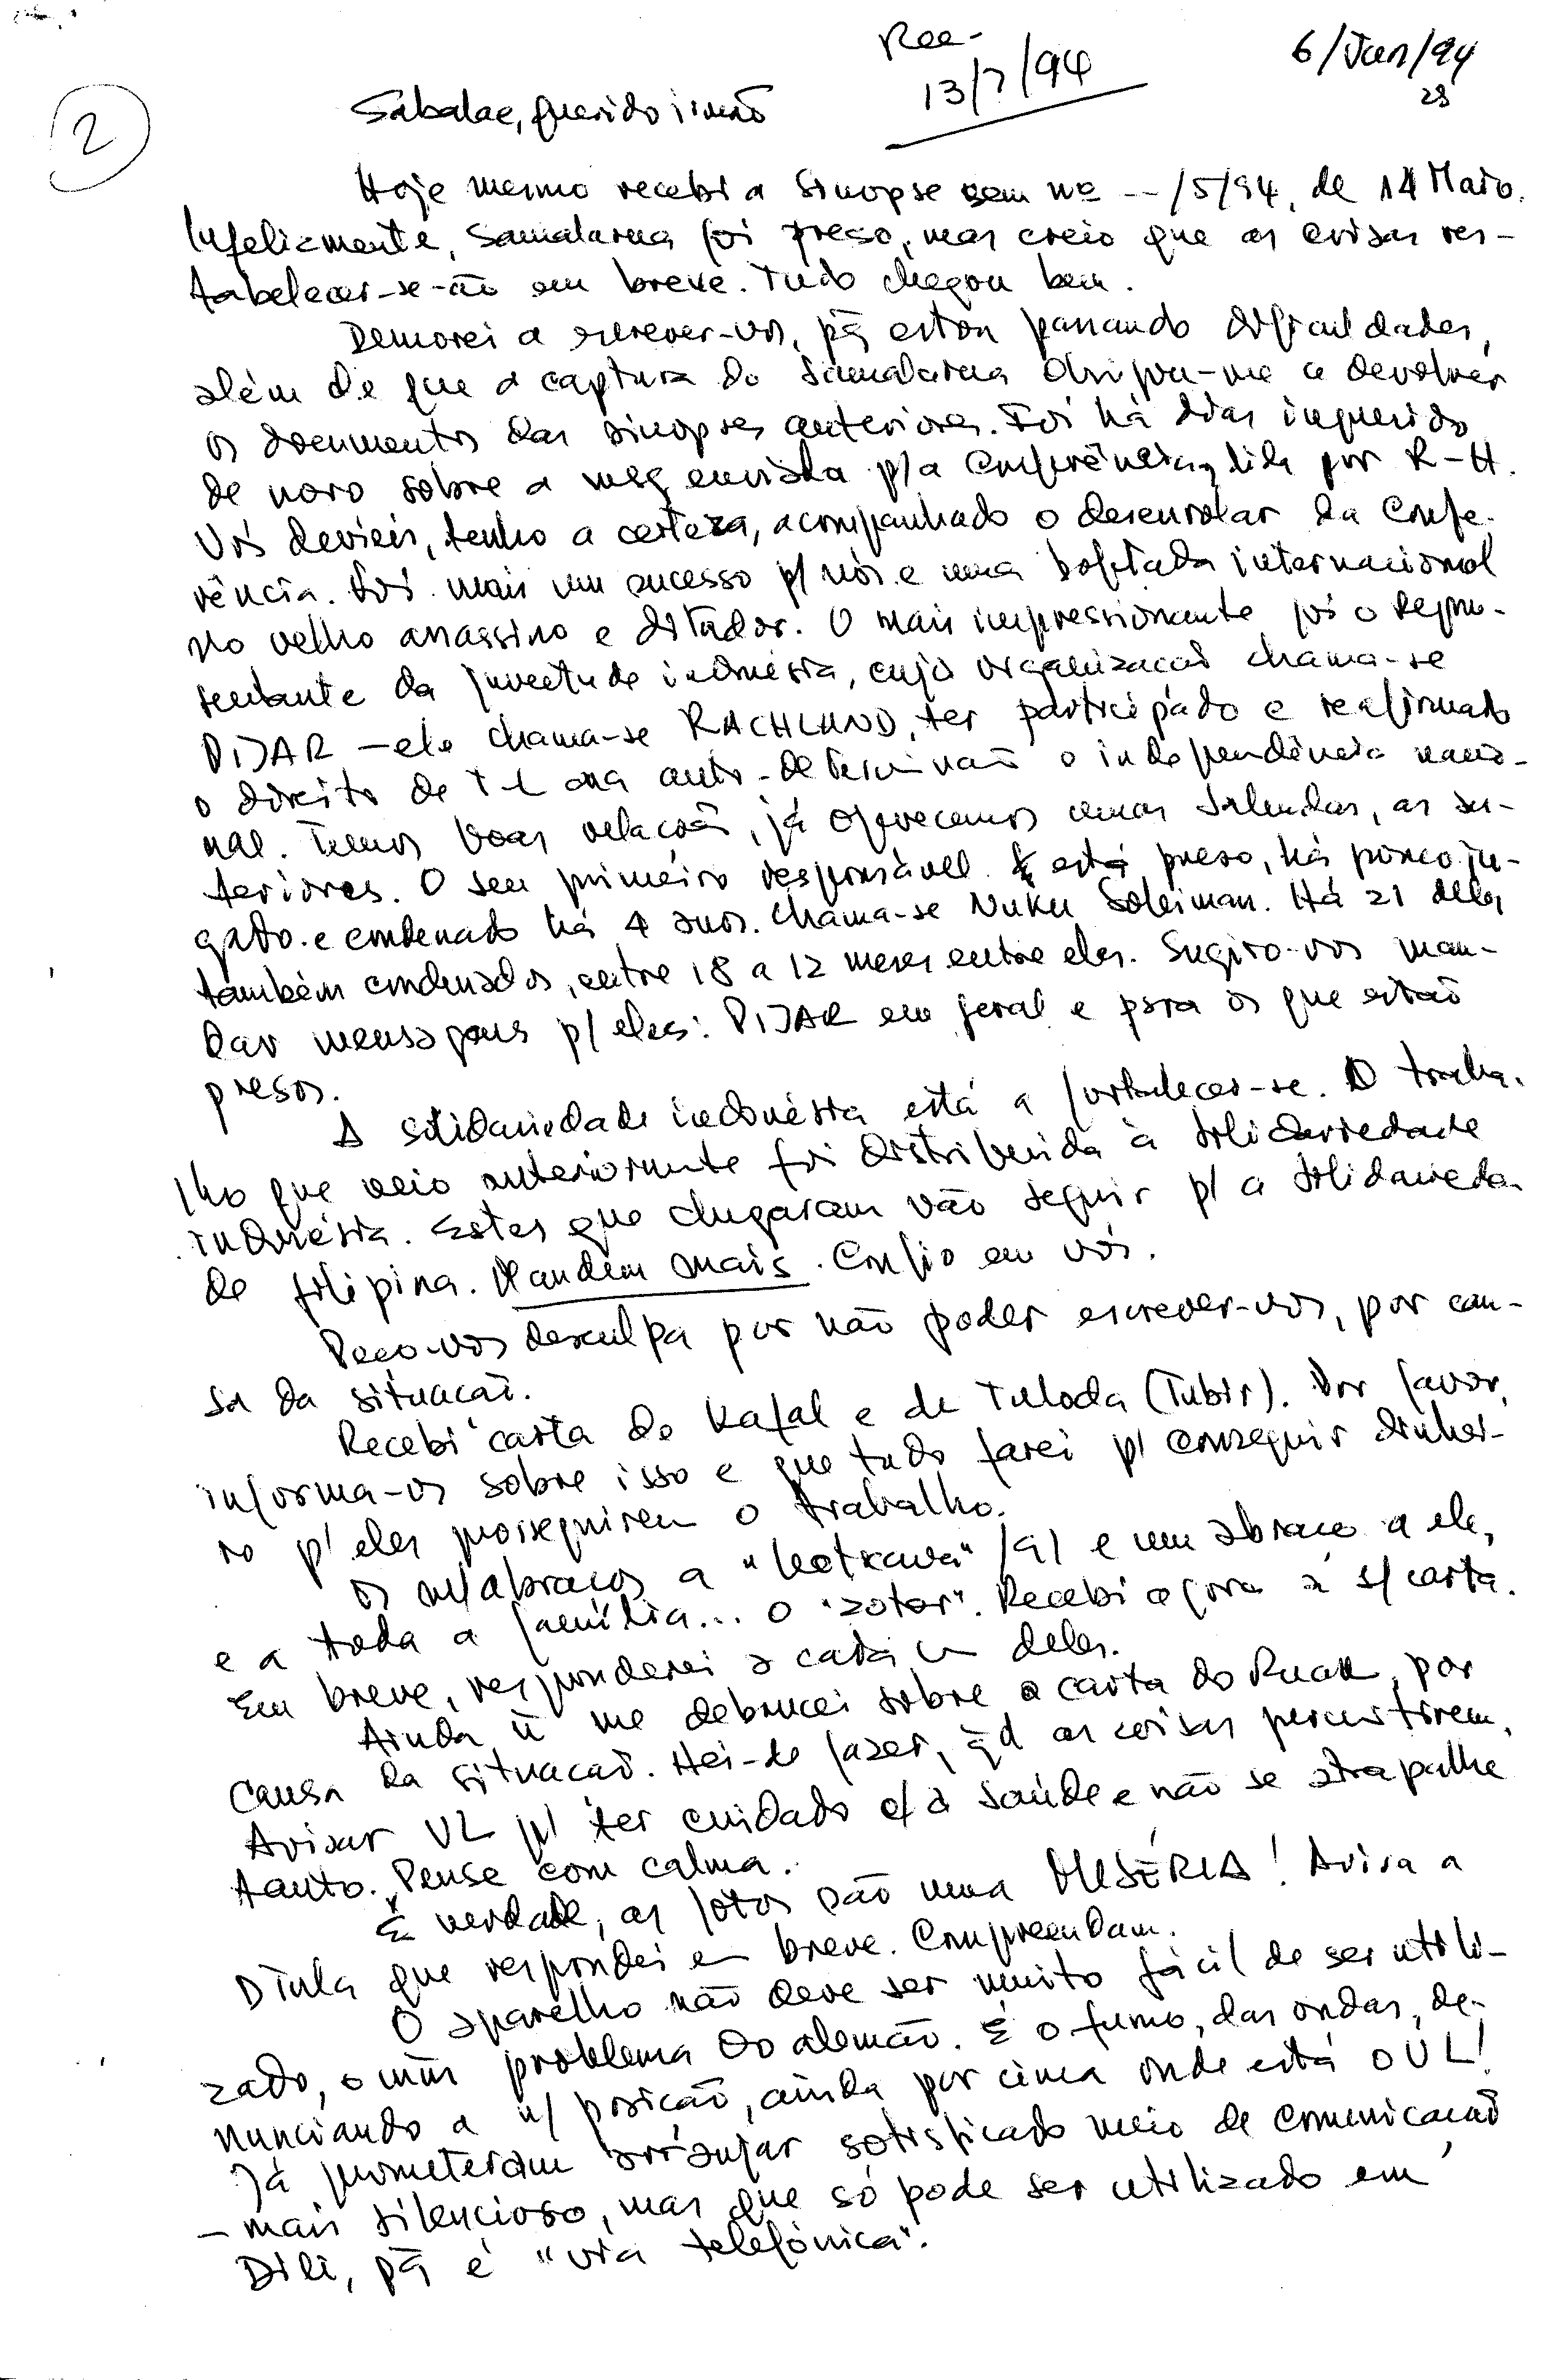 Rec-
13/7/94
6/Jun/94
23
2
Sabalae, querido irmão
Hoje mesmo recebi a Sinopse sem nº --/5/94, de 14 Maio.
Infelizmente, Samalarua foi preso, mas creio que as coisas res-
tabelecer-se-ão em breve. Tudo chegou bem.
Demorei a escrever-vos, pq̃ estou passando dificuldades,
além de que a captura do Samalarua obrigou-me a devolver
os documentos das sinopses anteriores. Foi há dias inquerido
de novo sobre a msg enviada p/a Conferência, lida por R-H.
Vós devíeis, tenho a certeza, acompanhado o desenrolar da Confe-
rência. Foi mais um sucesso p/ nós e uma bofetada internacional
no velho assassino e ditador. O mais impressionante foi o repre-
sentante da juventude indonésia, cuja organizacão chama-se
PIJAR – ele chama-se RACHLAND, ter participado e reafirmado
o direito de T-L à auto-determinacão e independência nacio-
nal. Temos boas relacões, já oferecemos umas salendas, as an-
teriores. O seu primeiro responsável está preso, há pouco jul-
gado e condenado há 4 anos. Chama-se Nuku Soleiman. Há 21 deles
também condenados, entre 18 a 12 meses entre eles. Sugiro-vos man-
dar mensagens p/ eles: PIJAR em geral e para os que estão
presos.
A solidariedade indonésia está a fortalecer-se. O traba-
lho que veio anteriormente foi distribuida à solidariedade
indonésia. Estes que chegaram vão seguir p/ a solidarieda-
de filipina. Mandem mais. Confio em vós.
Peco-vos desculpa por não poder escrever-vos, por cau-
sa da situacão.
Recebi carta do Kafal e de Tuloda (Tubir). Por favor,
informa-os sobre isso e que tudo farei p/ conseguir dinhei-
ro p/ eles prosseguirem o trabalho.
Os m/abracos a "hotxava" /91 e um abraco a ele,
e a toda a família... o "zotar". Recebi agora a s/ carta.
Em breve, responderei a cada um deles.
Ainda ñ me debrucei sobre a carta do Ruak, por
causa da situacão. Hei-de fazer, qd as coisas permitirem.
Avisar UL p/ ter cuidado c/ a saúde e não se atrapalhe
tanto. Pense com calma.
É verdade, as fotos são uma MISÉRIA! Avisa a
Diula que respondei em breve. Compreendam.
O aparelho não deve ser muito fácil de ser utili-
zado, o mm problema do alemão. É o fumo, das ondas, de-
nunciando a n/ posicão, ainda por cima onde está o UL!
Já prometeram arranjar sofisticado meio de comunicacão
– mais silencioso, mas que só pode ser utilizado em
Díli, pq̃ é "via telefónica".